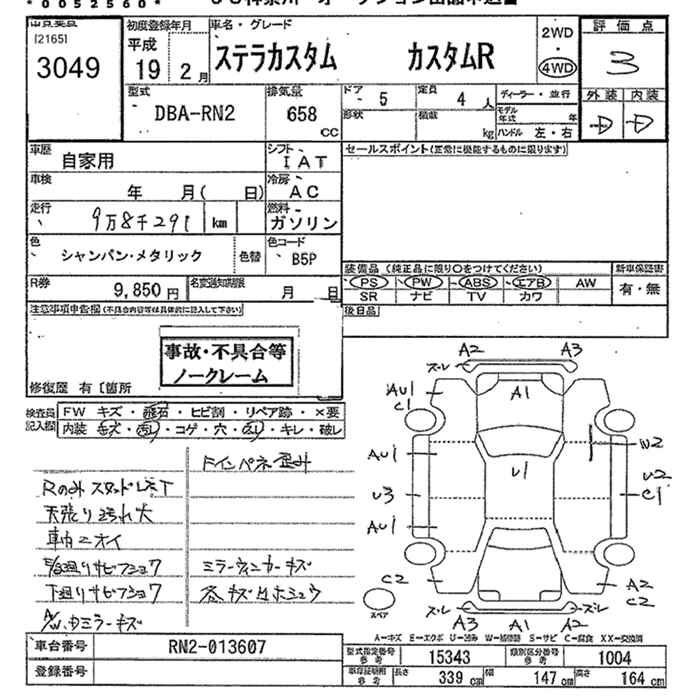 *0052560*
[2165]
3049
初度登録年月
平成
19年 2月
車名・グレード
ステラカスタム カスタムR
2WD
・
4WD
評価点
3
外装 内装
D D
型式
DBA-RN2
排気量
658
cc
ドア 5
定員 4 人
形状
積載 kg
ディーラー・並行
モデル年式 年
ハンドル 左・右
車歴 自家用
シフト IAT
セールスポイント(正常に機能するものに限ります)
車検 年 月( 日)
冷房 AC
走行 9万8千291 km
燃料 ガソリン
色 シャンパン・メタリック 色替
色コード B5P
装備品(純正品に限り○をつけてください)
新車保証書
PS・PW・ABS・エアB AW
SR ナビ TV カワ
有・無
R券 9,850円
名変通知期限 月 日
後日品
注意事項申告欄(不具合内容等は具体的に記入して下さい)
事故・不具合等
ノークレーム
修復歴 有〔箇所
検査員記入欄
FW キズ・飛石・ヒビ割・リペア跡・×要
内装 キズ・汚れ・コゲ・穴・キレ・破レ
Rのみスタッドレス
天張り汚れ大
車内ニオイ
下廻りサビ
ミラーウィンカーキズ
A2 A3
ズレ
A1
AU1
C1
AU1
U3
AU1
U1
W2
U2
C1
C2
A2
C2
スペア
ズレ ズレ
A3 A1 A2
A—キズ E—エクボ U—凹み W—補修跡 S—サビ C—腐食 XX—交換済
車台番号 RN2-013607
登録番号
型式指定番号 参考 15343
類別区分番号 参考 1004
車庫証明用 参考
長さ 339 cm 幅 147 cm 高さ 164 cm